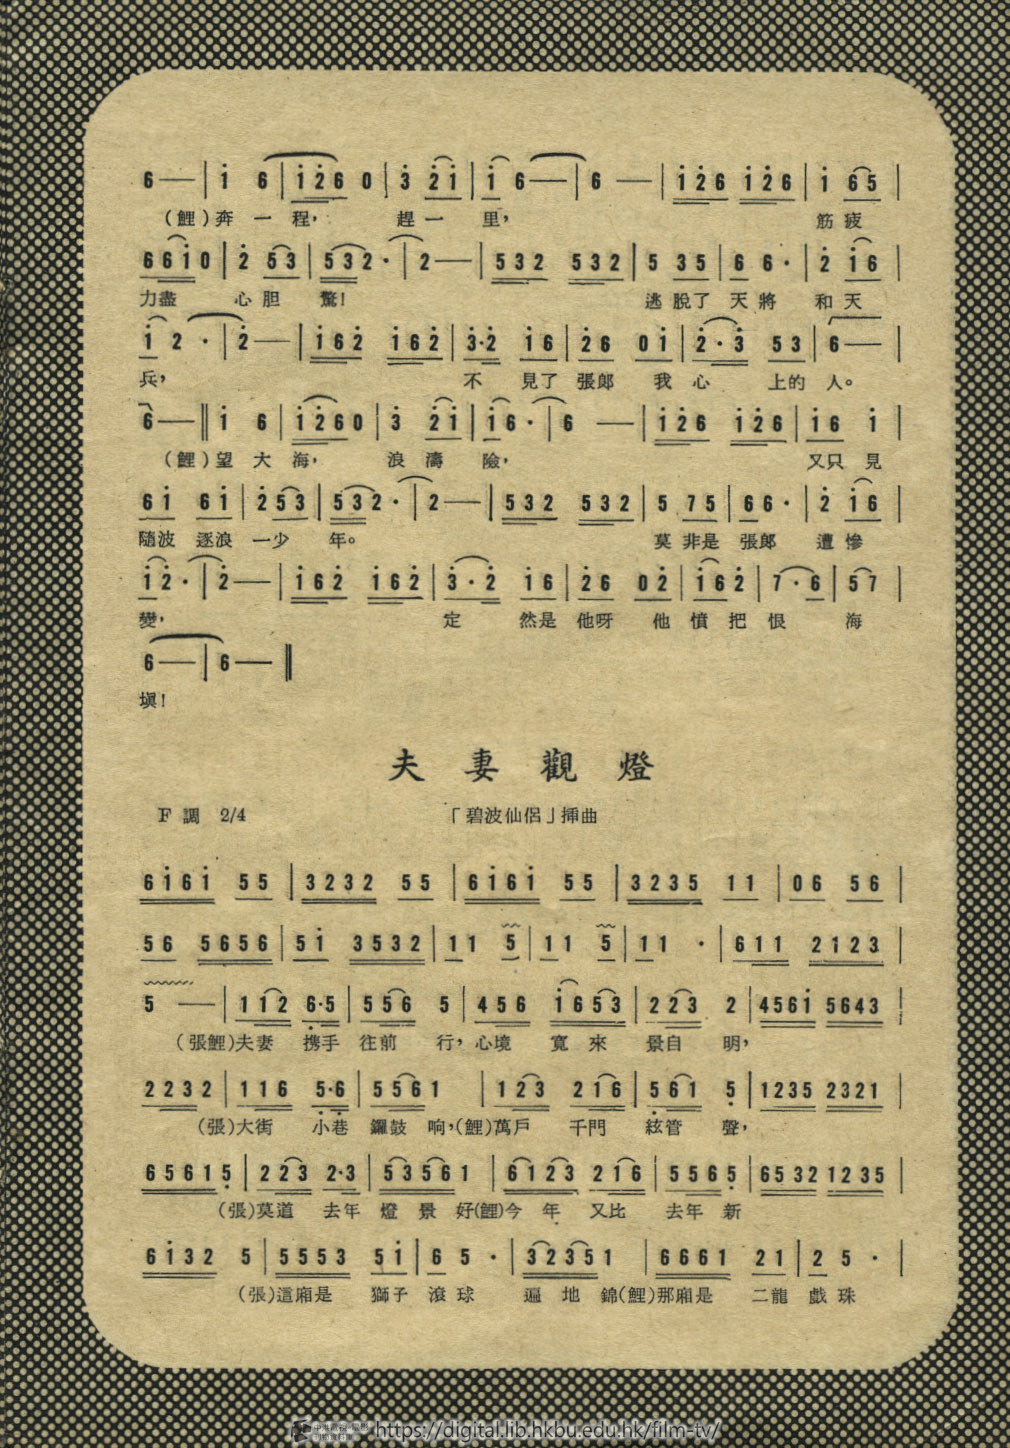 6—｜i 6｜i 2 6 0｜3 2 i｜i 6—｜6 —｜i 2 6 i 2 6｜i 6 5｜
（鯉）奔 一 程， 趕 一 里， 筋 疲
6 6 i 0｜2 5 3｜5 3 2 ·｜2—｜5 3 2 5 3 2｜5 3 5｜6 6 ·｜2 i 6｜
力盡 心 胆 驚！ 逃 脫了 天 將 和 天
i 2 ·｜2—｜i 6 2 i 6 2｜3·2 i 6｜2 6 0 i｜2 · 3 5 3｜6—｜
兵， 不 見了 張郎 我 心 上的 人。
6—‖i 6｜i 2 6 0｜3 2 i｜i 6 ·｜6 —｜i 2 6 i 2 6｜i 6 i｜
（鯉）望 大 海， 浪 濤 險， 又只 見
6 i 6 i｜2 5 3｜5 3 2 ·｜2—｜5 3 2 5 3 2｜5 7 5｜6 6 ·｜2 i 6｜
隨波 逐浪 一少 年。 莫 非是 張郎 遭 慘
i 2 ·｜2—｜i 6 2 i 6 2｜3 · 2 i 6｜2 6 0 2｜i 6 2｜7 · 6｜5 7｜
變， 定 然是 他呀 他 憤 把 恨 海
6—｜6—‖
塡！
夫 妻 觀 燈
F 調 2/4 「碧波仙侶」揷曲
6 i 6 i 5 5｜3 2 3 2 5 5｜6 i 6 i 5 5｜3 2 3 5 1 1｜0 6 5 6｜
5 6 5 6 5 6｜5 i 3 5 3 2｜1 1 5｜1 1 5｜1 1 ·｜6 1 1 2 1 2 3｜
5 —｜1 1 2 6·5｜5 5 6 5｜4 5 6 i 6 5 3｜2 2 3 2｜4 5 6 i 5 6 4 3｜
（張鯉）夫妻 携手 往前 行，心境 寬 來 景自 明，
2 2 3 2｜1 1 6 5·6｜5 5 6 1｜1 2 3 2 1 6｜5 6 1 5｜1 2 3 5 2 3 2 1｜
（張）大街 小巷 鑼鼓 响，（鯉）萬戶 千門 絃管 聲，
6 5 6 1 5｜2 2 3 2·3｜5 3 5 6 1｜6 1 2 3 2 1 6｜5 5 6 5｜6 5 3 2 1 2 3 5｜
（張）莫道 去年 燈 景 好（鯉）今 年 又比 去年 新
6 i 3 2 5｜5 5 5 3 5 i｜6 5 ·｜3 2 3 5 1｜6 6 6 1 2 1｜2 5 ·｜
（張）這廂是 獅子 滾 球 遍 地 錦（鯉）那廂是 二龍 戲 珠
https://digital.lib.hkbu.edu.hk/film-tv/